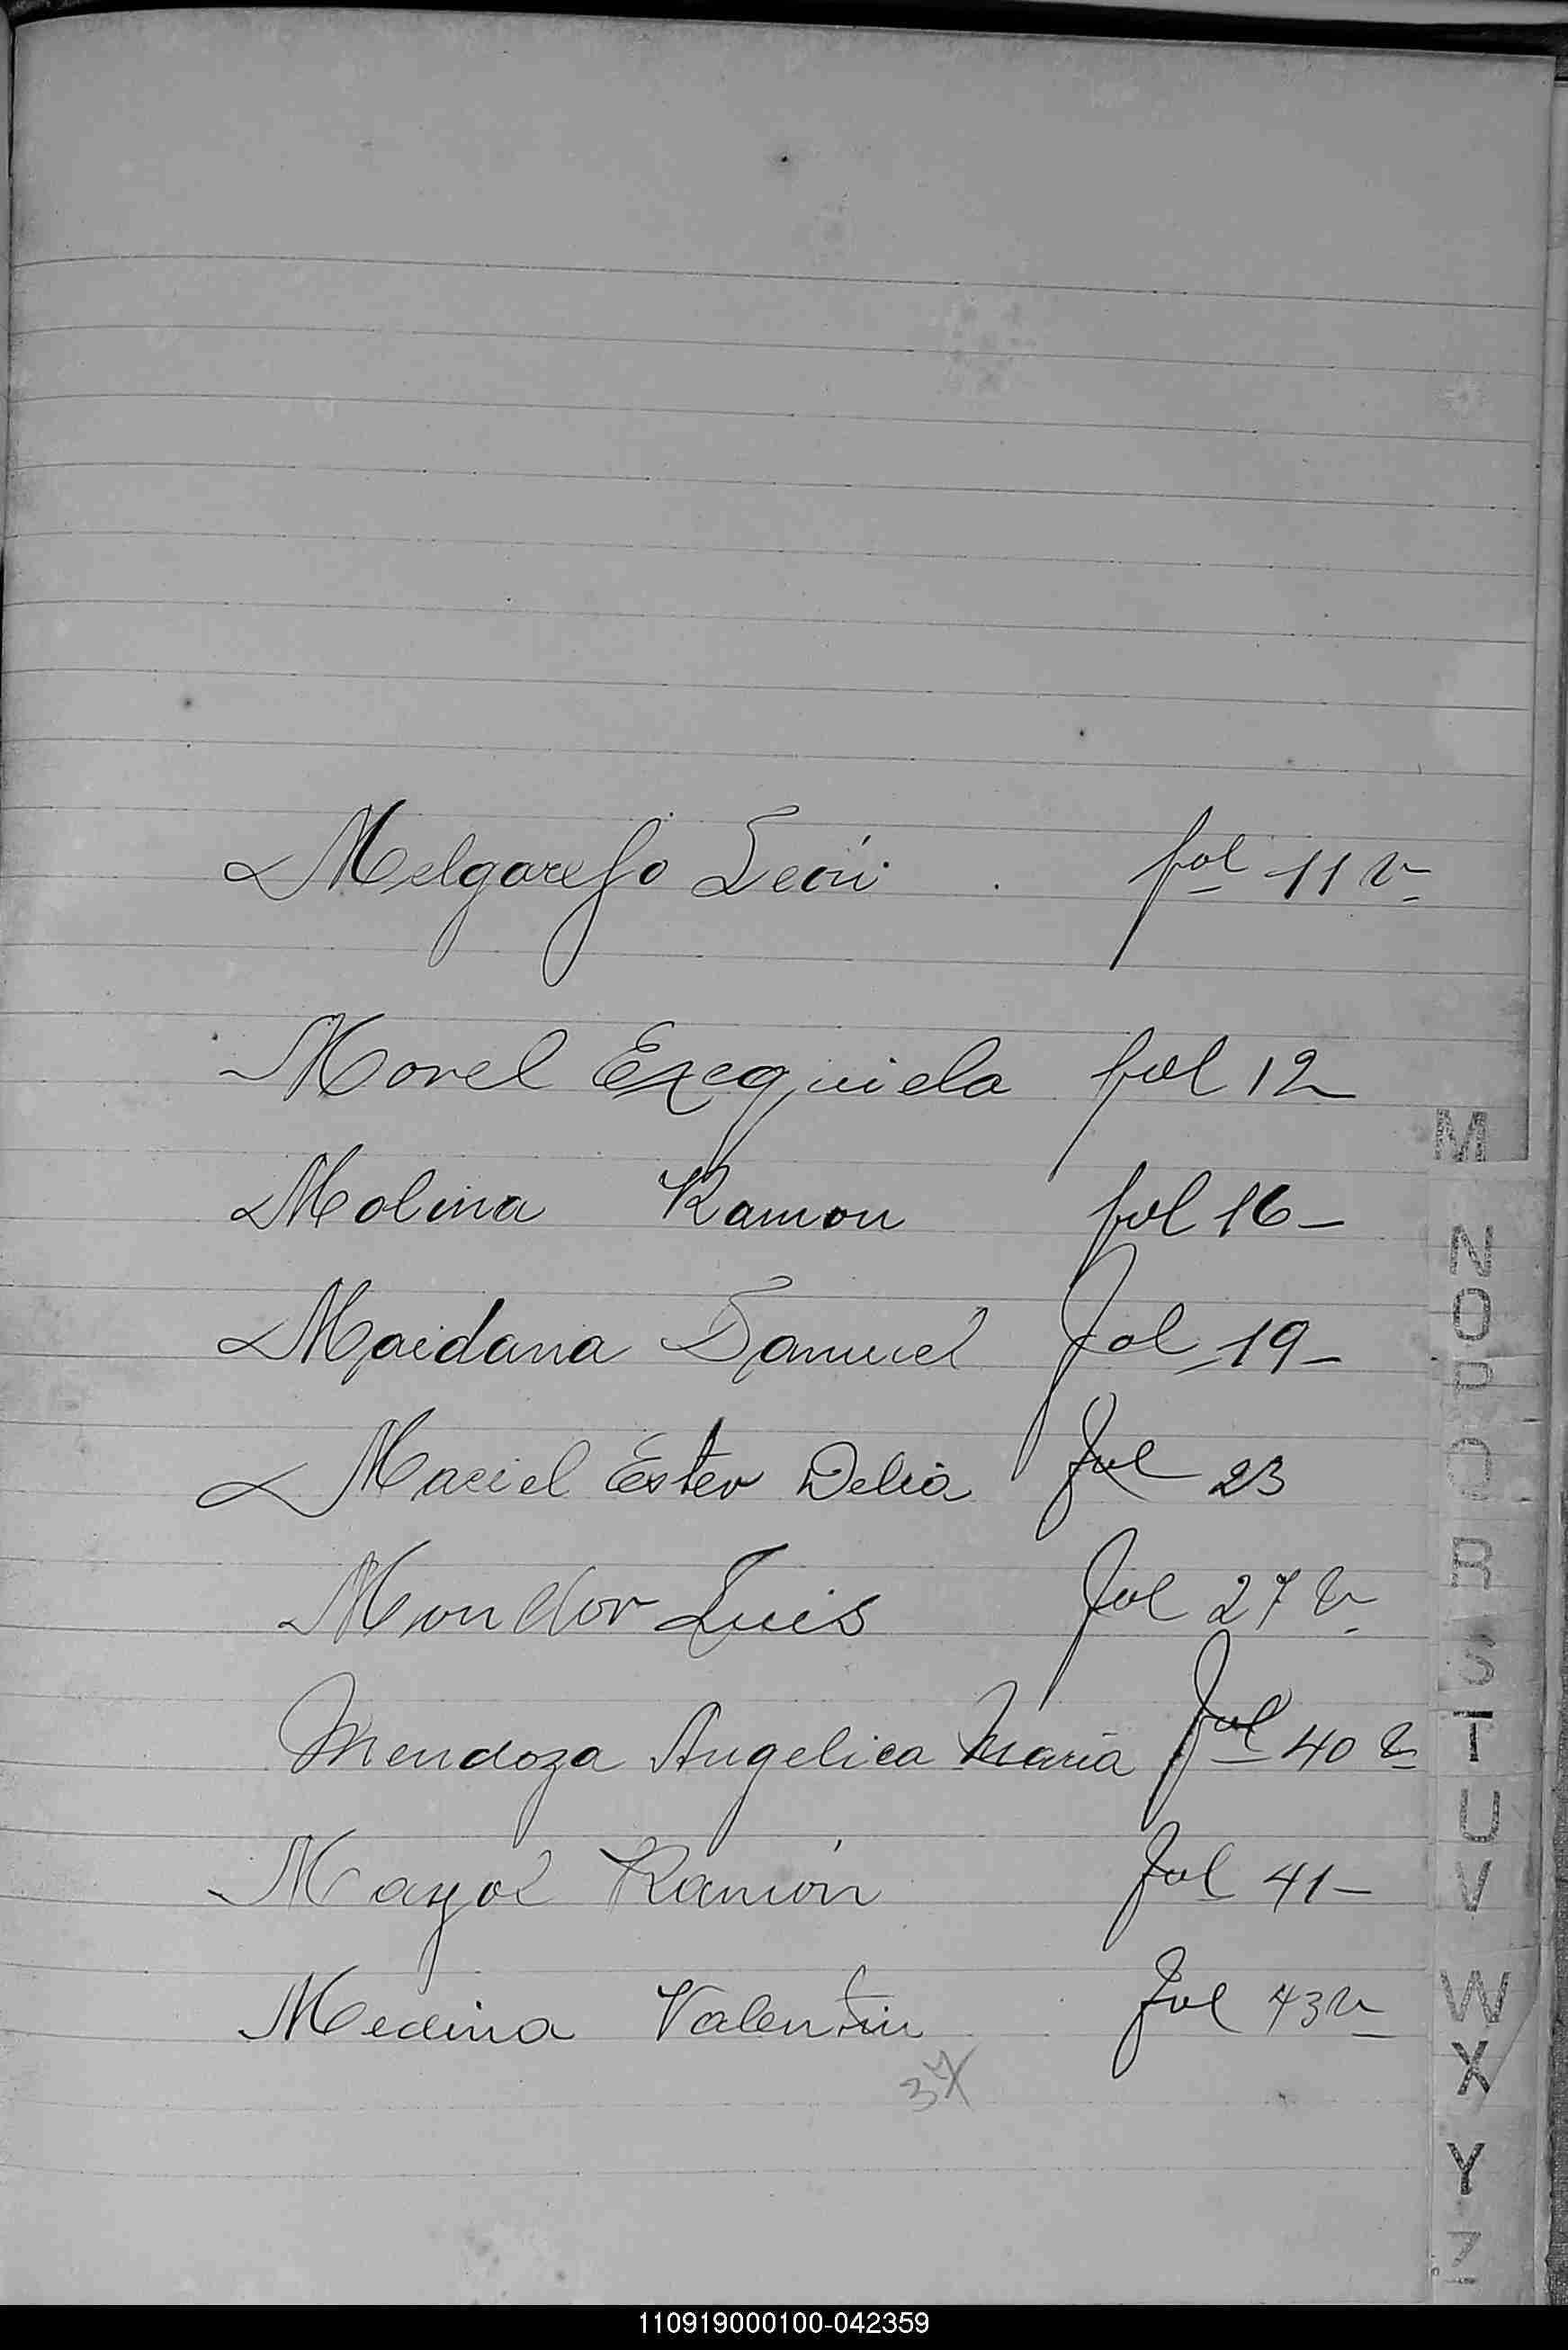 Melgarejo León fol 11 v
Morel Exequiela fol 12
Molina Ramon fol 16 –
Maidana Samuel fol 19 –
Maciel Ester Delia fol 23
Luis fol 27 v
Mendoza Angelica Maria fol 40 v
Mayol Ramón fol 41 –
Medina Valentin fol 43 v
M
N
O
P
Q
R
S
T
U
V
W
X
Y
Z
110919000100-042359